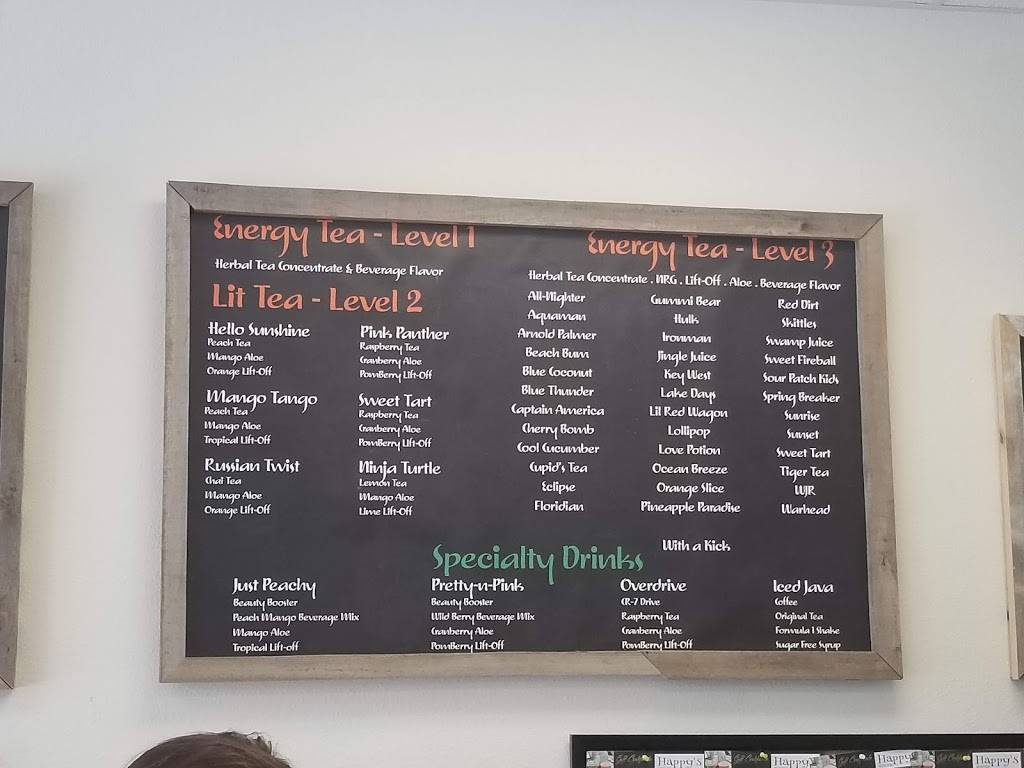 Energy Tea - Level 1
Herbal Tea Concentrate & Beverage Flavor
Lit Tea - Level 2
Hello Sunshine
Peach Tea
Mango Aloe
Orange Lift-Off
Mango Tango
Peach Tea
Mango Aloe
Tropical Lift-Off
Russian Twist
Chai Tea
Mango Aloe
Orange Lift-Off
Pink Panther
Raspberry Tea
Cranberry Aloe
PomBerry Lift-Off
Sweet Tart
Raspberry Tea
Cranberry Aloe
PomBerry Lift-Off
Ninja Turtle
Lemon Tea
Mango Aloe
Lime Lift-Off
Energy Tea - Level 3
Herbal Tea Concentrate . NRG . Lift-Off . Aloe . Beverage Flavor
All-Nighter
Aquaman
Arnold Palmer
Beach Bum
Blue Coconut
Blue Thunder
Captain America
Cherry Bomb
Cool Cucumber
Cupid's Tea
Eclipse
Floridian
Gummi Bear
Hulk
Ironman
Jingle Juice
Key West
Lake Days
Lil Red Wagon
Lollipop
Love Potion
Ocean Breeze
Orange Slice
Pineapple Paradise
Red Dirt
Skittles
Swamp Juice
Sweet Fireball
Sour Patch Kids
Spring Breaker
Sunrise
Sunset
Sweet Tart
Tiger Tea
WJR
Warhead
With a Kick
Specialty Drinks
Just Peachy
Beauty Booster
Peach Mango Beverage Mix
Mango Aloe
Tropical Lift-off
Pretty-n-Pink
Beauty Booster
Wild Berry Beverage Mix
Cranberry Aloe
PomBerry Lift-Off
Overdrive
CR-7 Drive
Raspberry Tea
Cranberry Aloe
PomBerry Lift-Off
Iced Java
Coffee
Original Tea
Formula 1 Shake
Sugar Free Syrup
Happy's
Happy's
Happy's